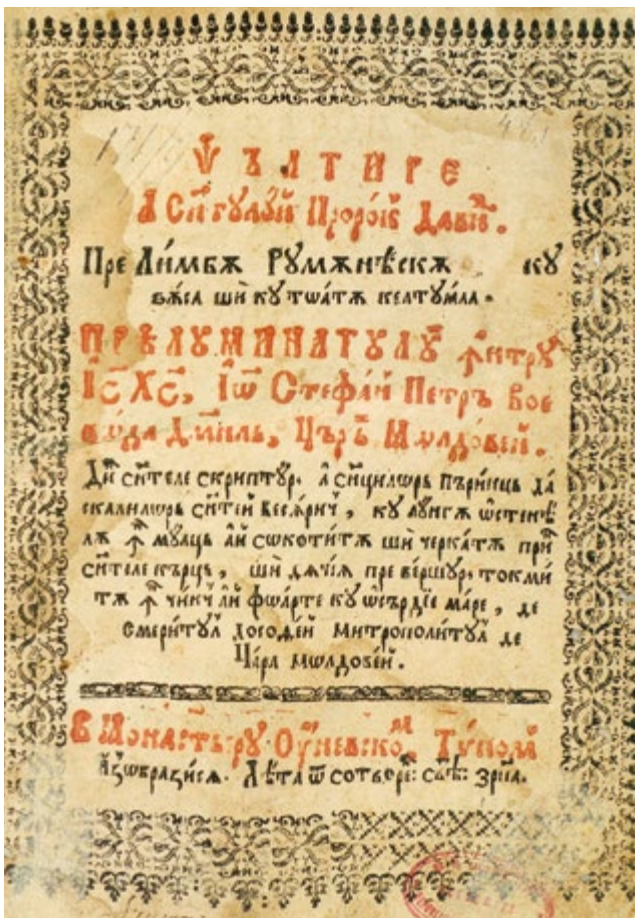 Ѱълтире
а сн҃тулуй Пророк Давид.
Пре Лимбѫ Румѫнѣскѫ ку
вѩса ши ку тѡатѫ келтуѧла.
Прѣлуминатулуй ꙟнтру
І҃с Х҃с, Іѡ Стефан Петръ Вое
вода Домнль, Църъ Мѡлдовей.
Дин с҃нтеле скриптур. а с҃нцилѡрь пъринць да
скалилѡрь с҃нтей бесѣричй, ку лунгѫ ѡстенѣ
лѫ ꙟ мулць ань сѡкотитѫ ши черкатѫ прин
с҃нтеле кърць, ши дѧчіѧ пре вершурь токми
тѫ ꙟ чинчь ань фѡарте ку ѡсърдіе маре, де
Смеритул Дософтей Митрополитул де
Цара Мѡлдовей.
В Монастыру Оуневском, Тѵпом
Изѡбразисѧ. Лѣта ѿ сотворе: свѣ: зрпа.